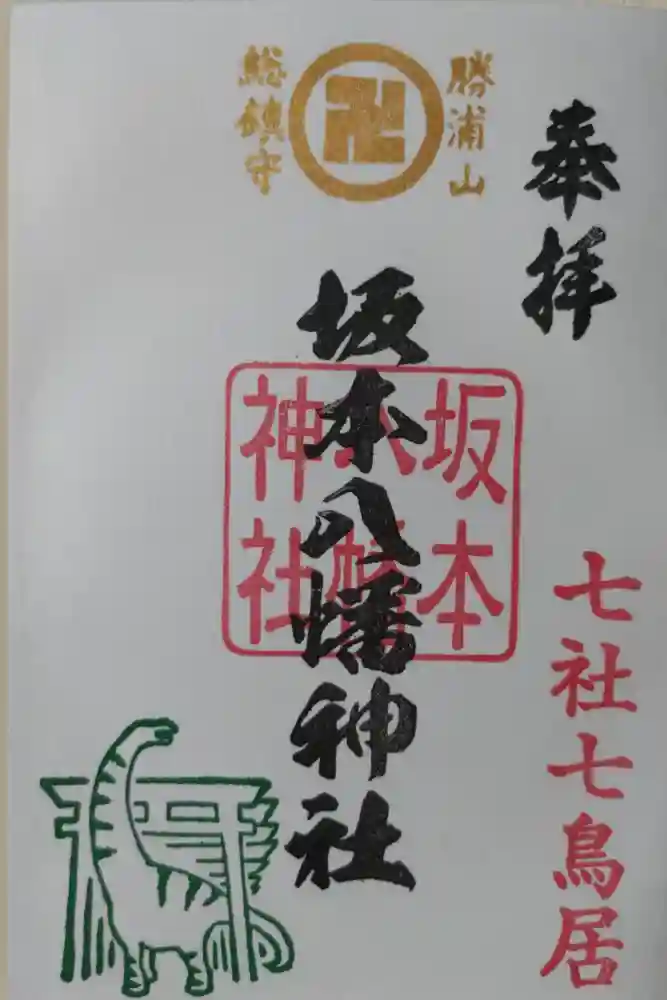 奉拝
七社七鳥居
勝浦山
卍
総鎮守
坂本八幡神社
坂本
八幡
神社